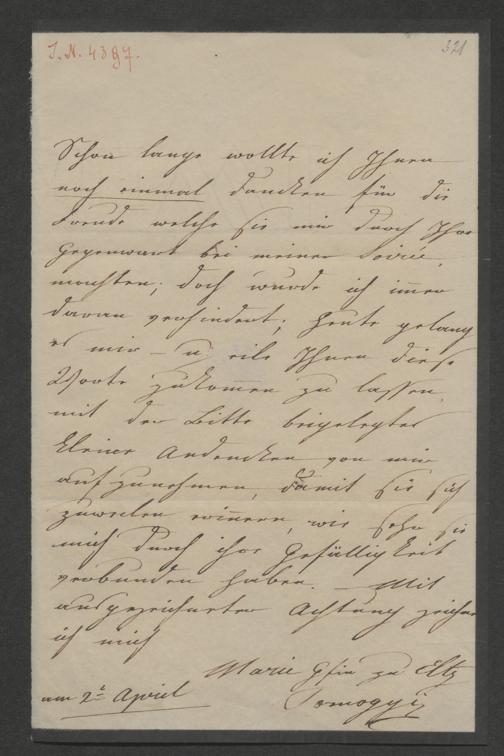 J. N. 4397.
321
Schon lange wollte ich Ihnen
noch einmal dancken für die
Freude welche sie mir durch Ihre
Gegenwart bei meiner Soirée,
machten; doch wurde ich immer
daran verhindert; heute gelang
es mir – u. eile Ihnen diese
Worte zukommen zu lassen,
mit der Bitte beigelegtes
kleines Andencken von mir
aufzunehmen, damit sie sich
zuweilen erinnern, wie sehr sie
mich durch ihre Gefälligkeit
verbunden haben. – Mit
ausgezeichneter Achtung zeichne
ich mich
Marie Gfin zu Eltz
am 2t April
Somogyi